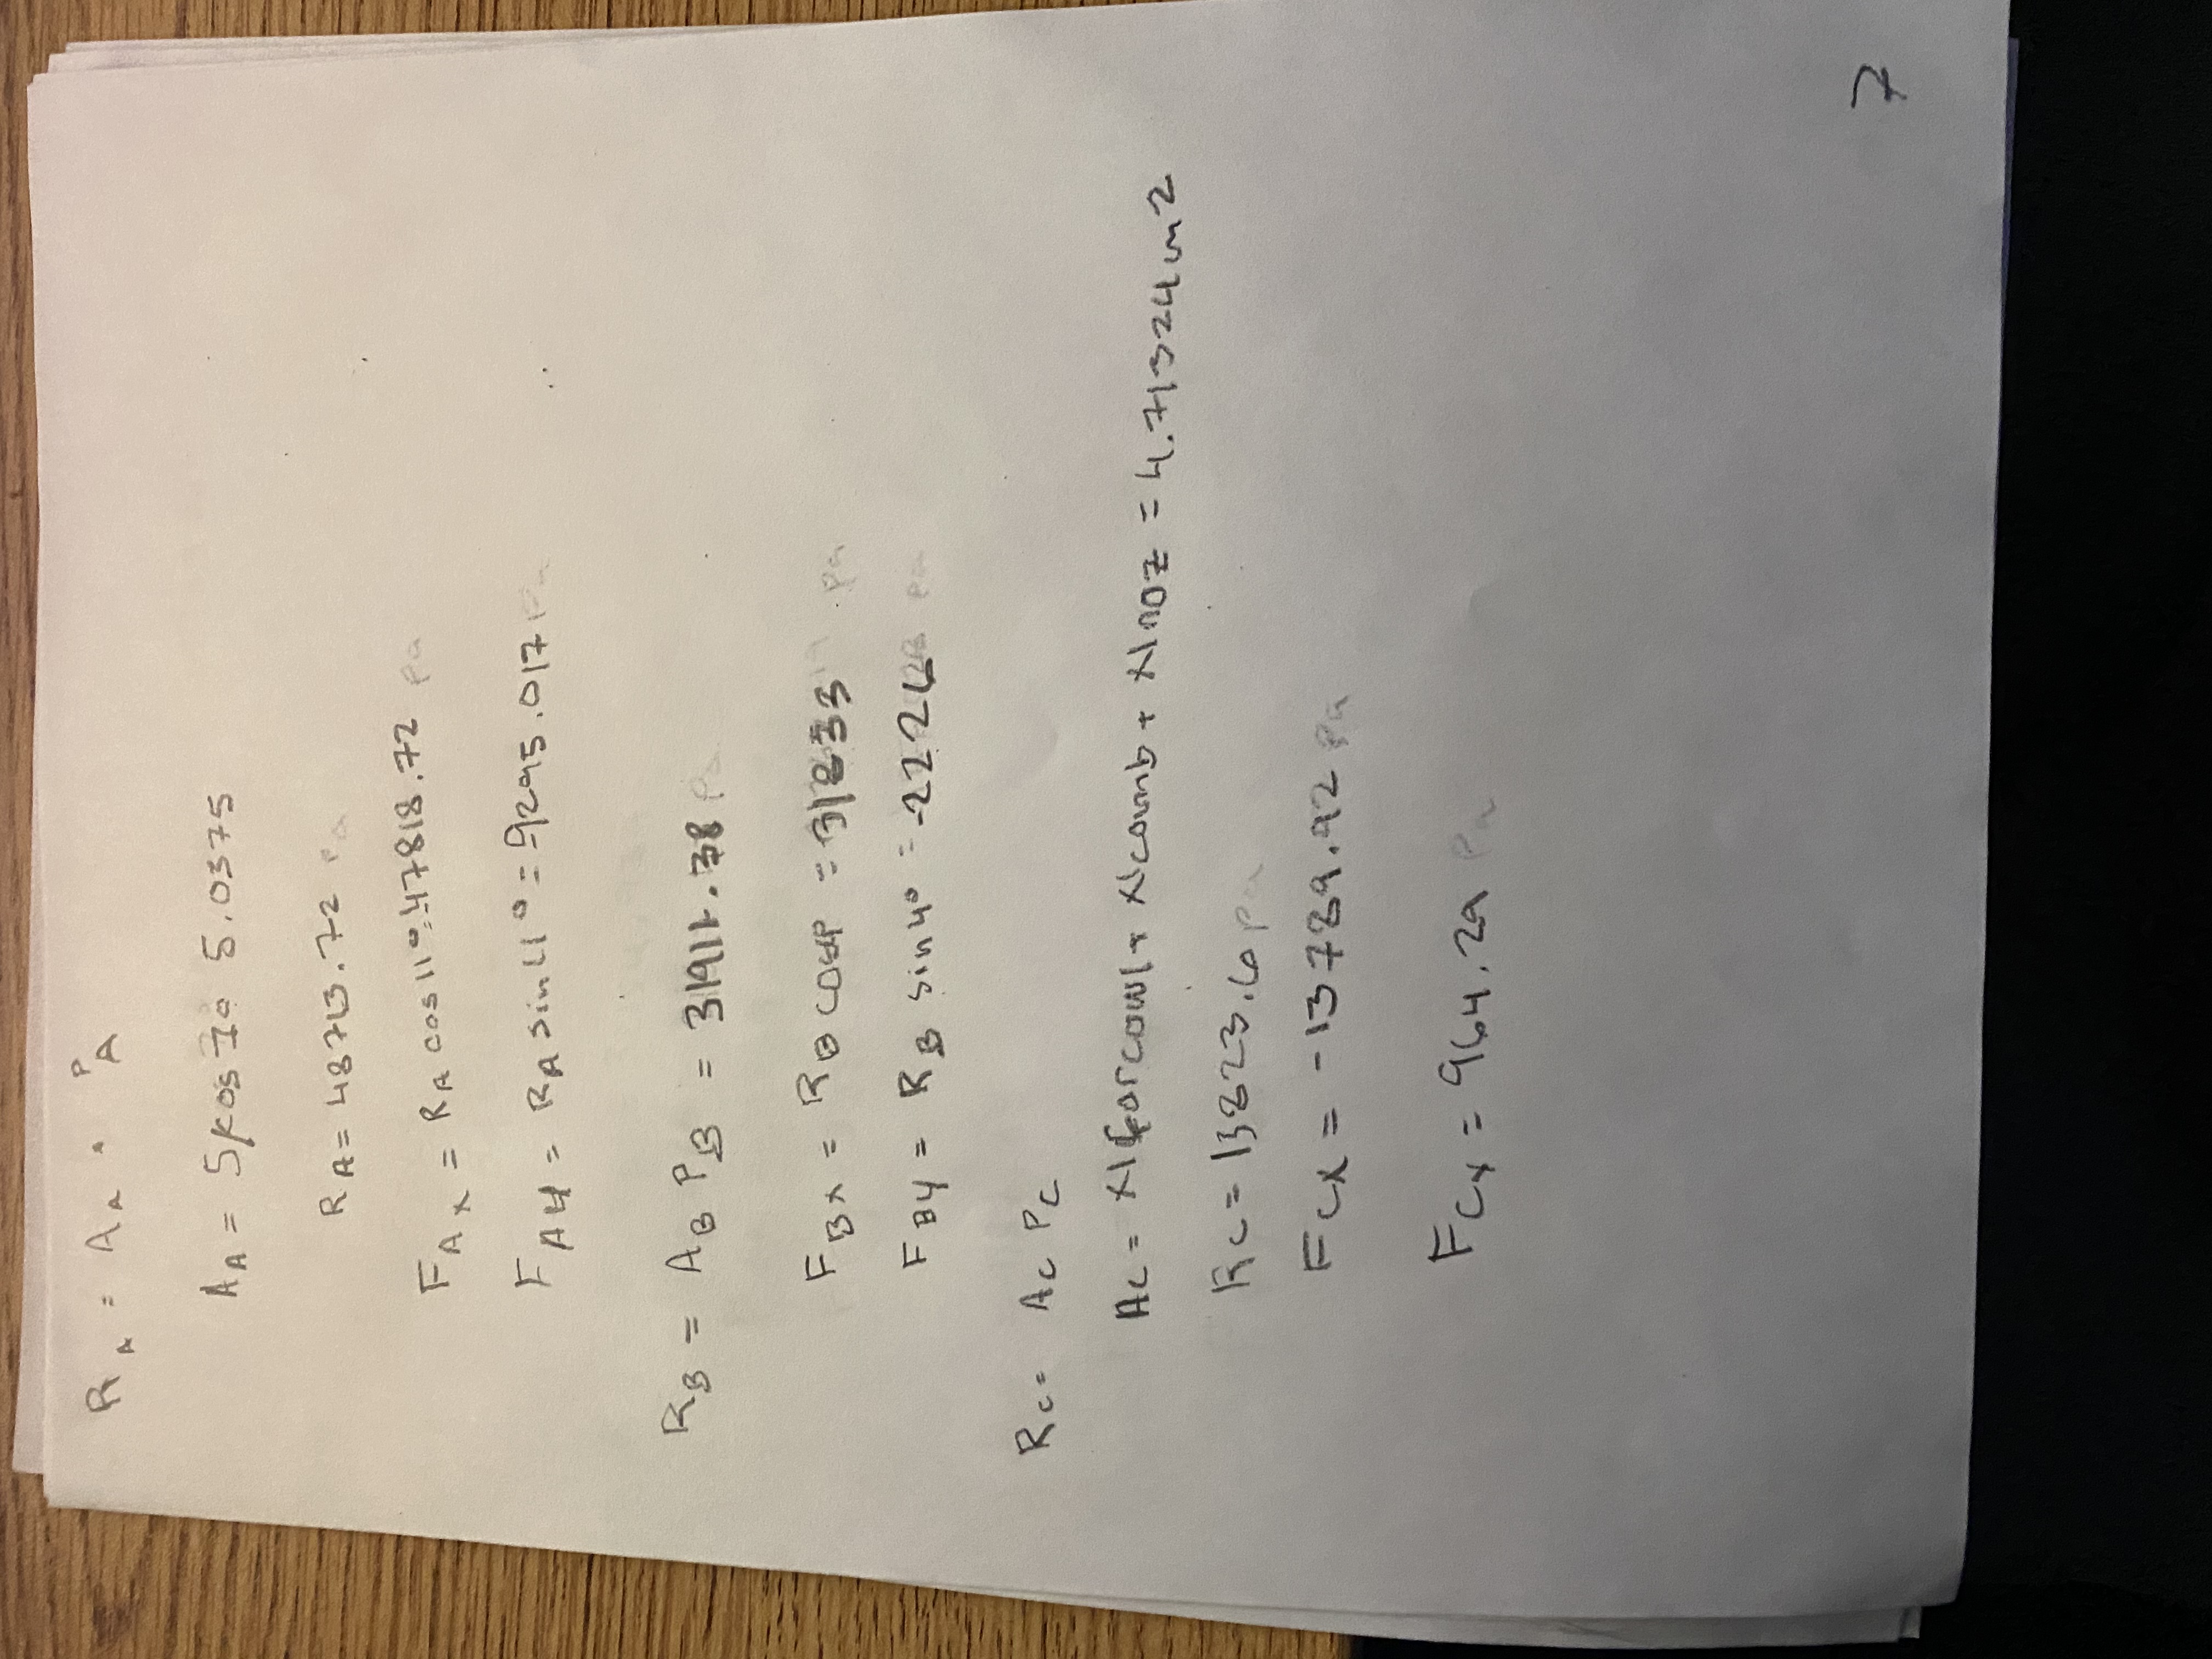 R_A = A_A · P_A
A_A = 5/cos 7° 5.0375
R_A = 48713.72 Pa
F_Ax = R_A cos 11° = -47818.72 pa
F_Ay = R_A sin 11° = -9295.017 Pa
R_B = A_B P_B = 31911.38 Pa
F_Bx = R_B cos4° = 31833 pa
F_By = R_B sin 4° = -2226 pa
R_C = A_C P_C
A_C = xl forcowl + xlcomb + xlnoz = 4.71324 m2
R_C = 13823.6 pa
F_Cx = -13789.92 Pa
F_Cy = 964.29 Pa
7